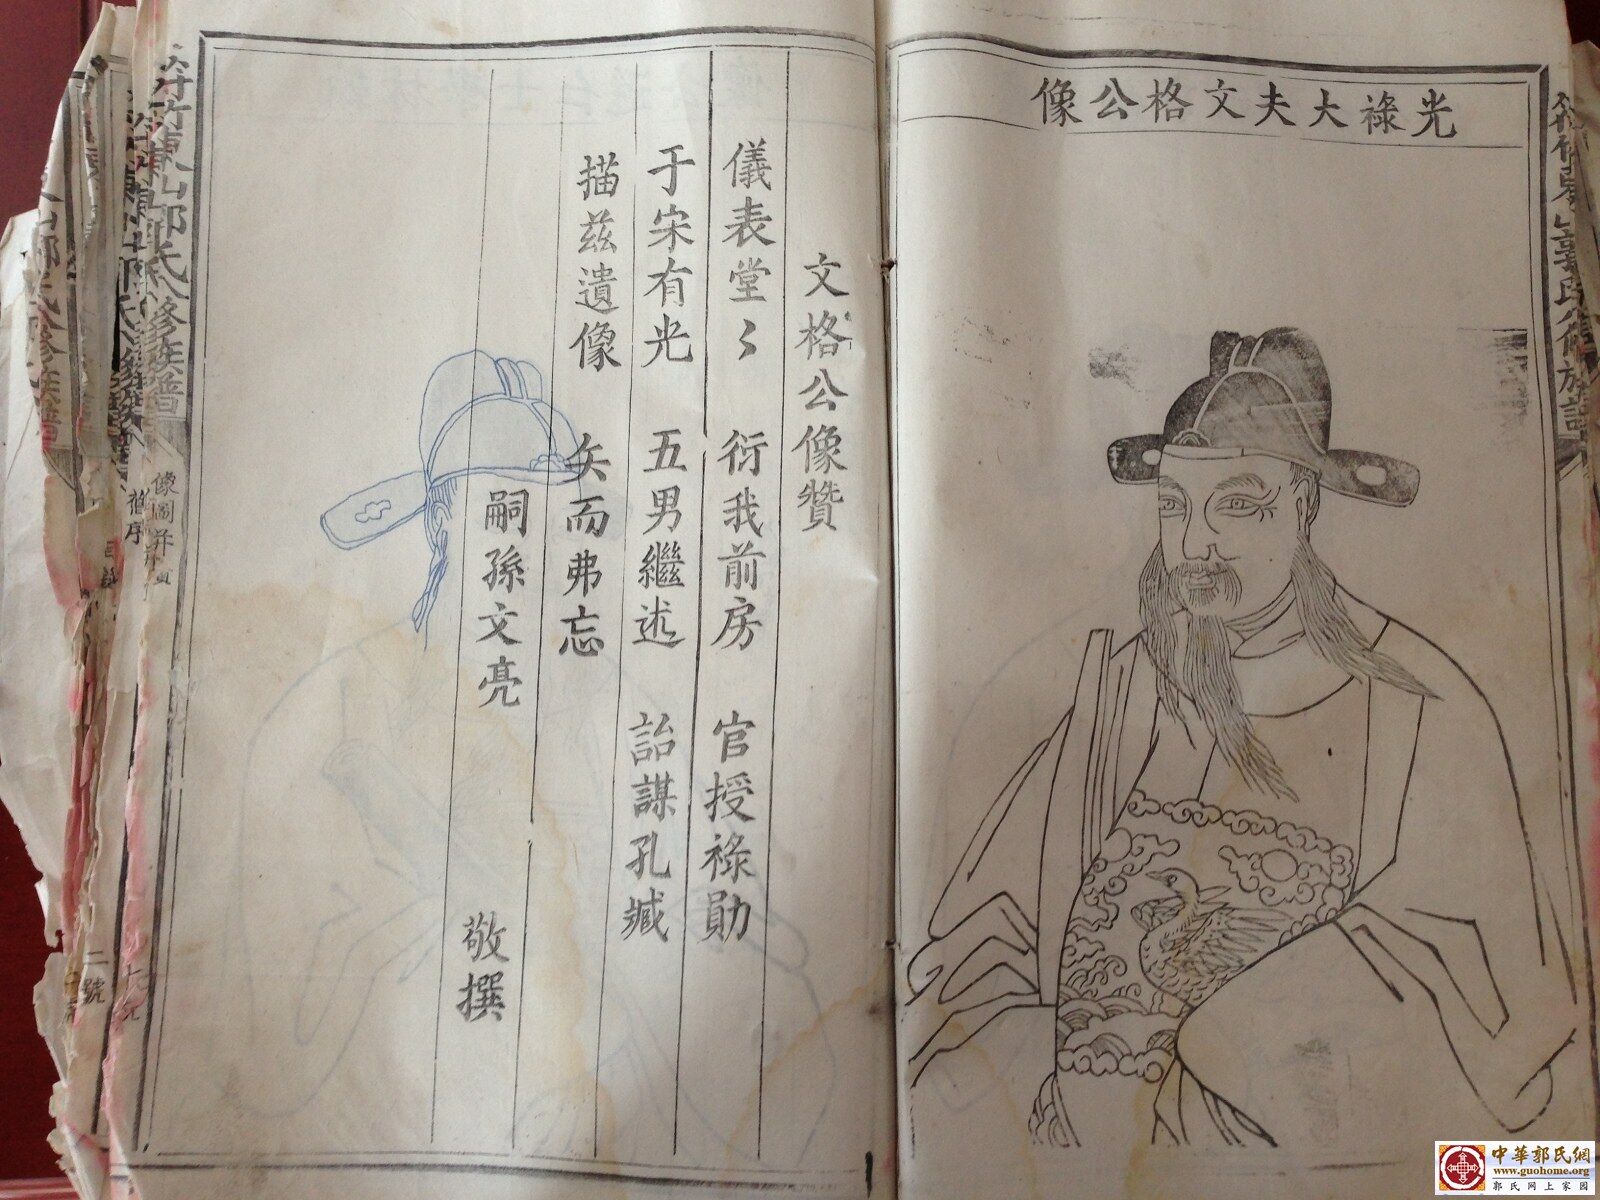 光祿大夫文格公像
文格公像贊
儀表堂〻 衍我前房 官授祿勛
于宋有光 五男繼述 詒謀孔臧
描兹遺像 矢而弗忘
嗣孫文亮 敬撰
像圖并
舊序
二號
中華郭氏網
www.guohome.org
郭氏网上家园